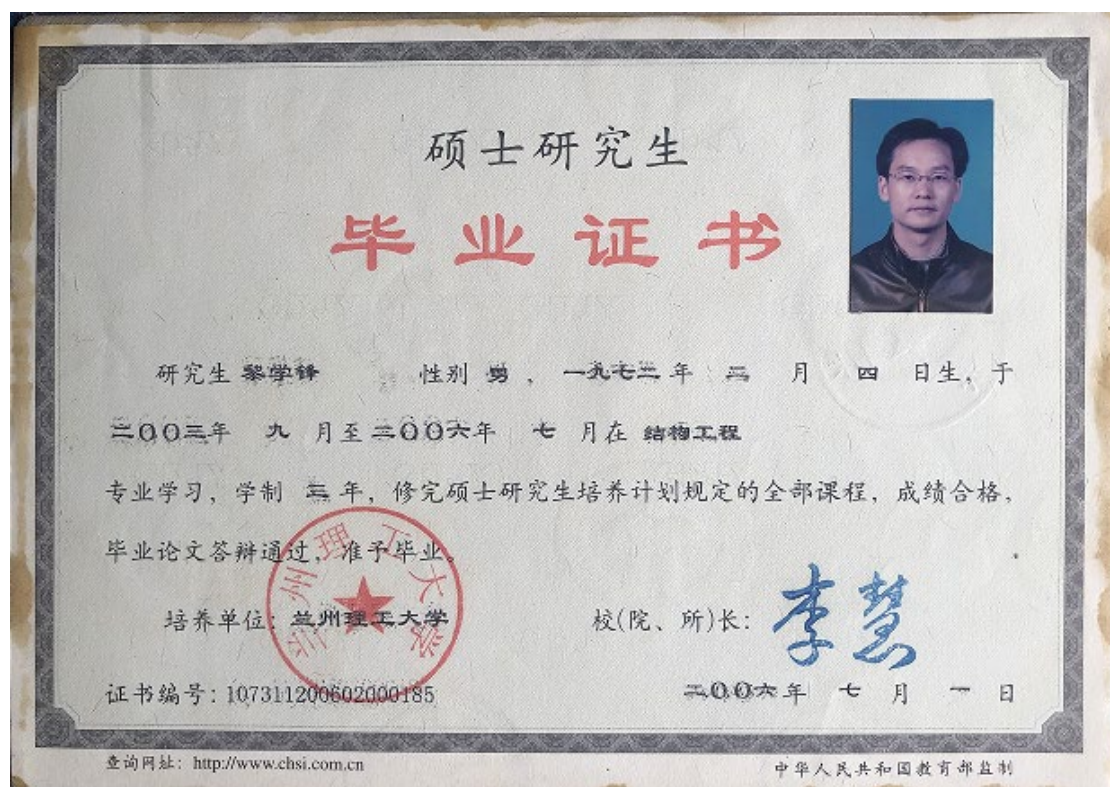 硕士研究生
毕业证书
研究生 黎学锋 性别 男 ， 一九七二 年 二 月 四 日生，于
二〇〇三年 九 月至 二〇〇六年 七 月在 结构工程
专业学习，学制 三 年，修完硕士研究生培养计划规定的全部课程，成绩合格，
毕业论文答辩通过，准予毕业。
兰州理工大学
培养单位：兰州理工大学 校(院、所)长：李慧
证书编号：107311200602000185 二〇〇六年 七 月 一 日
查询网址：http://www.chsi.com.cn 中华人民共和国教育部监制